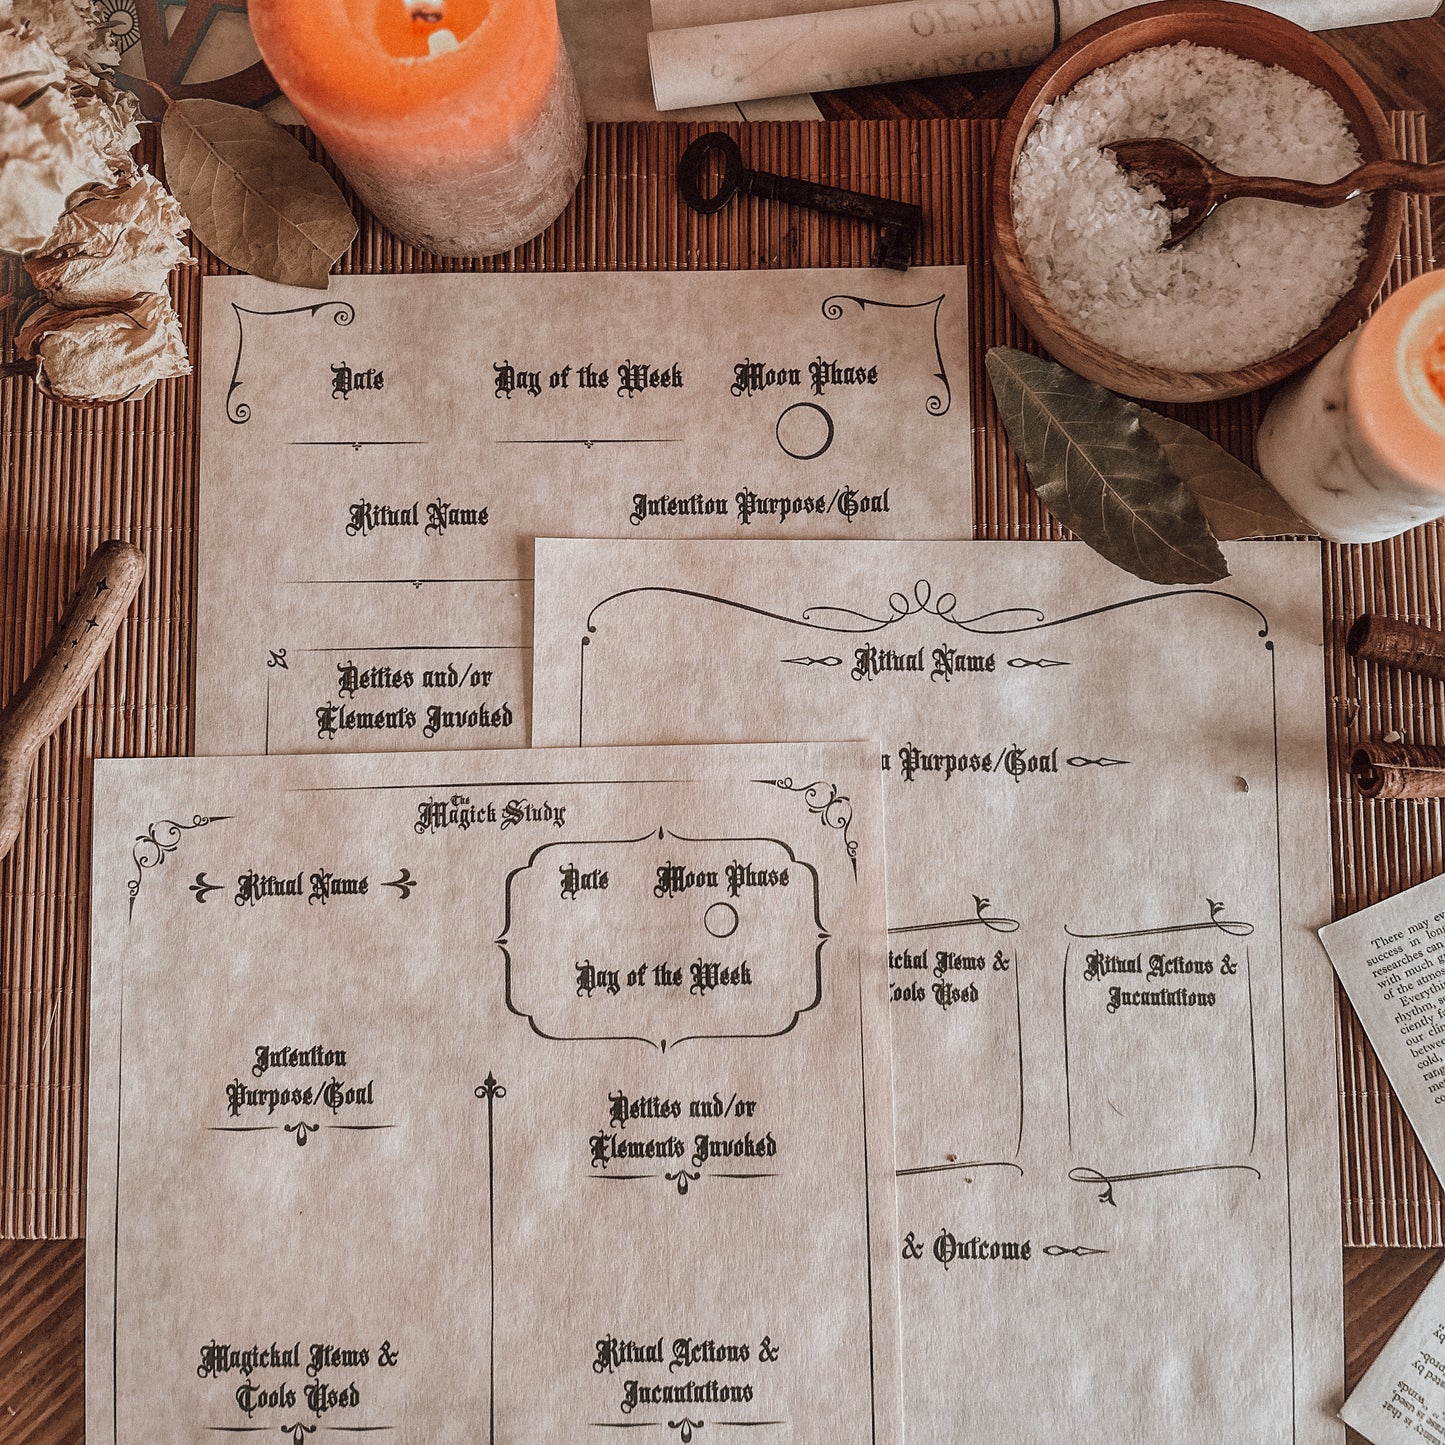 OF THE
THE MAGICK
Date
Day of the Week
Moon Phase
Ritual Name
Intention Purpose/Goal
Deities and/or
Elements Invoked
Ritual Name
Purpose/Goal
Magickal Items &
Tools Used
Ritual Actions &
Incantations
& Outcome
The
Magick Study
Ritual Name
Date
Moon Phase
Day of the Week
Intention
Purpose/Goal
Deities and/or
Elements Invoked
Magickal Items &
Tools Used
Ritual Actions &
Incantations
There may ev
success in long
researches can
with much g
of the atmos
Everythi
rhythm, s
ciently fa
our clim
betwee
cold,
rang
me
co